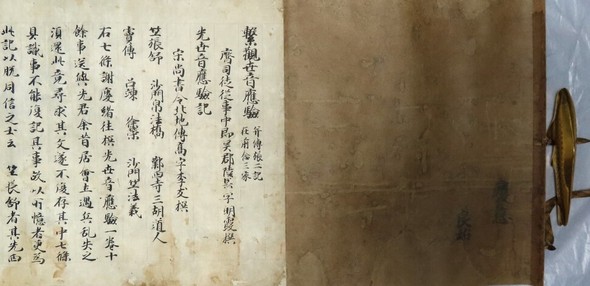 繫觀世音應驗 并傅張二記 在前合三家
齊司徒從事中郎吳郡陸杲字明霞撰
光世音應驗記
宋尚書令北地傅亮字季友撰
竺長舒 沙門帛法橋 鄴西寺三胡道人
竇傅 呂竦 徐榮 沙門竺法義
右七條謝慶緒往撰光世音應驗一卷十
餘事送與先君余昔居會土遇兵亂失之
頃還此竟尋求其文遂不復存其中七條
具識事不能復記其事故以所憶者更為
此記以悅同信之士云 竺長舒者其先西